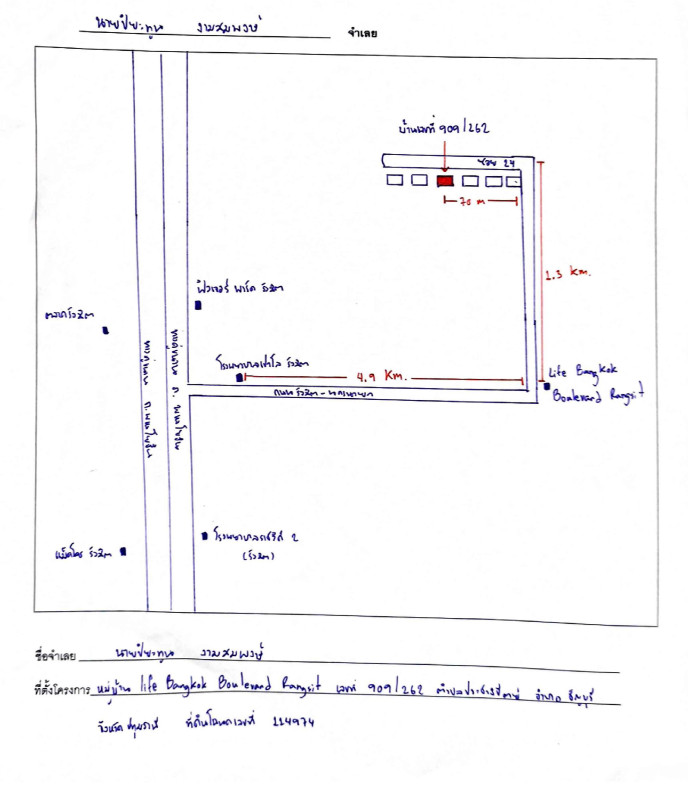 นายปิยะกูน งามสมพงษ์ จำเลย
บ้านเลขที่ 909/262
ซอย 24
70 m
1.3 Km.
ฟิวเจอร์ พาร์ค รังสิต
ตลาดรังสิต
ทางคู่ขนาน ถ. พหลโยธิน
ทางคู่ขนาน ถ. พหลโยธิน
โรงพยาบาลเปาโล รังสิต
4.9 Km.
Life Bangkok
Boulevard Rangsit
ถนนรังสิต-นครนายก
โรงพยาบาลแพทย์ 2
(รังสิต)
แม็คโคร รังสิต
ชื่อจำเลย นายปิยะกูน งามสมพงษ์
ที่ตั้งโครงการ หมู่บ้าน life Bangkok Boulevard Rangsit เลขที่ 909/262 ตำบลประชาธิปัตย์ อำเภอ ธัญบุรี
จังหวัด ปทุมธานี ที่ดินโฉนดเลขที่ 114974